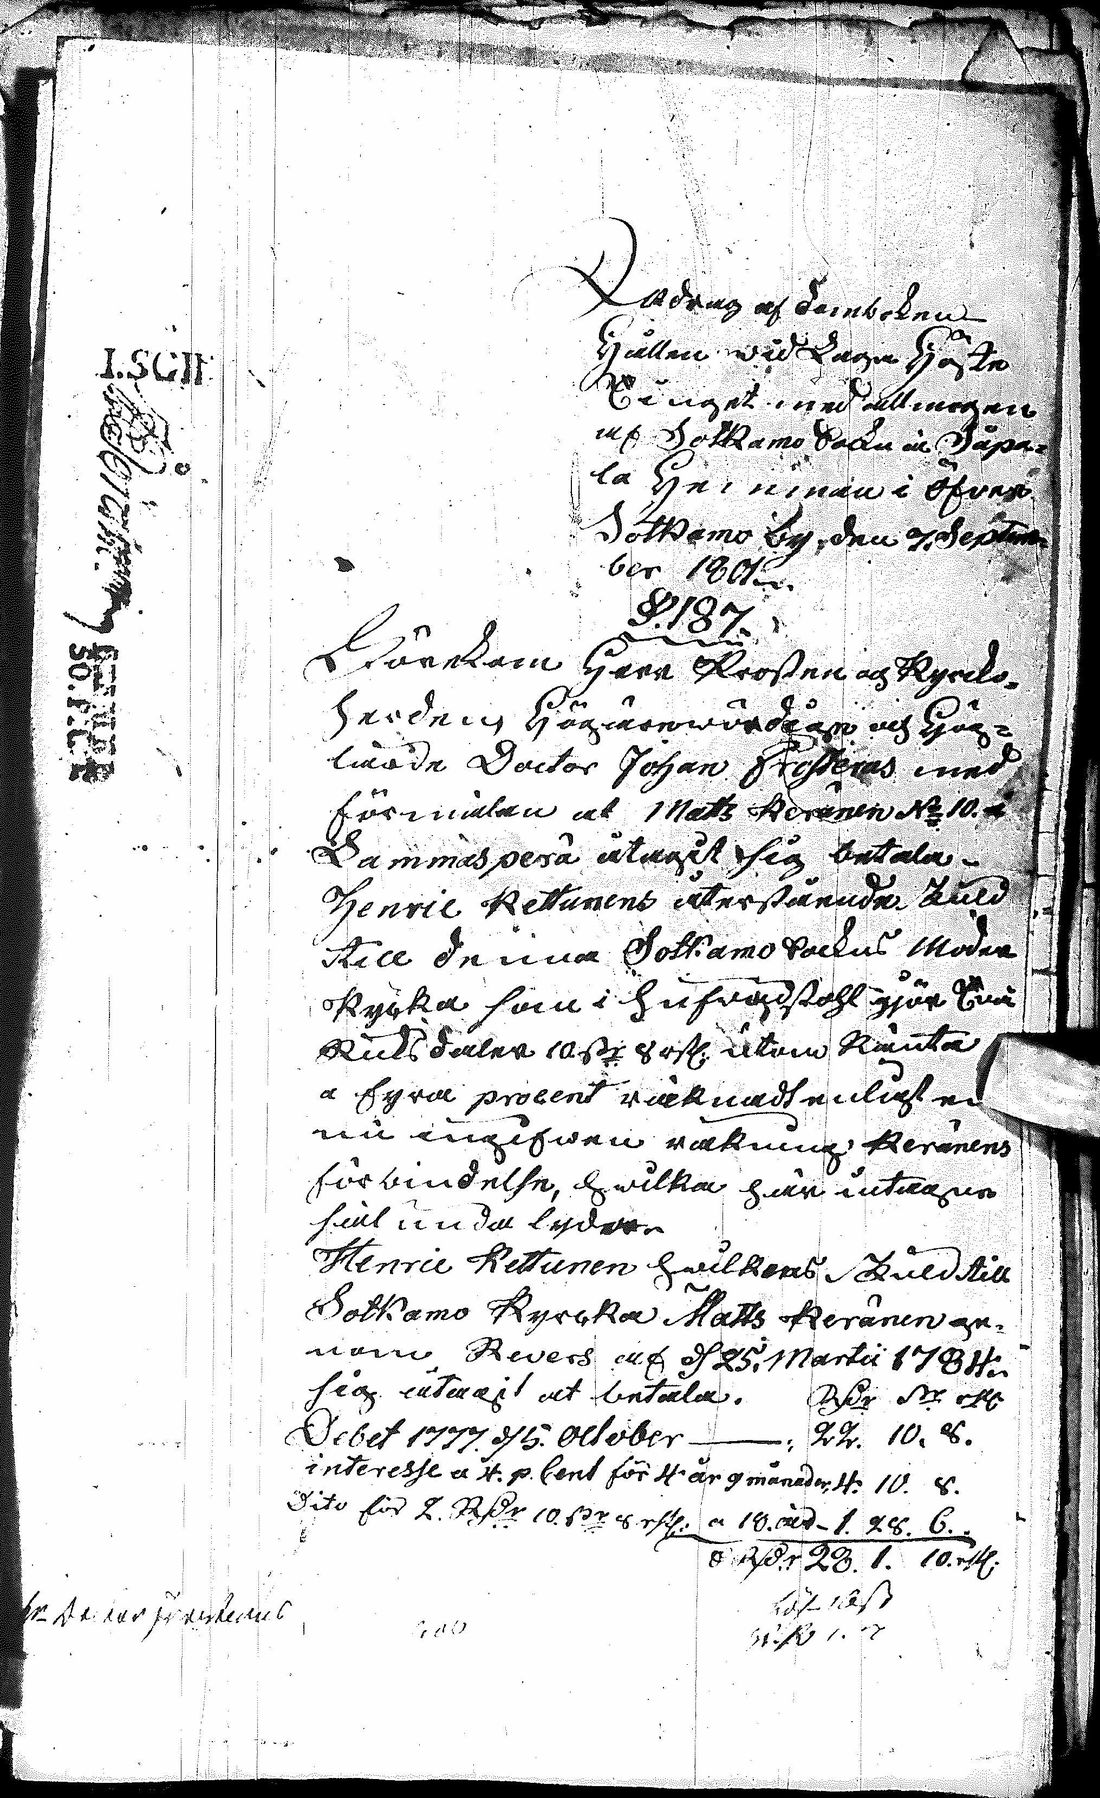 Utdrag af Domboken
Hållen vid Laga Höste
Tinget med allmogen
af Sotkamo Sockn å Säpä-
lä Hemman i Öfver
Sotkamo By, den 7. Septem-
ber 1801.
§. 187.
Förekom Herr Prosten och Kyrcko-
herden, Högärevördige och Hög-
lärde Doctor Johan Frosterus med
förmälan at Matts Keränen № 10. i
Lammasperä åtagit sig betala
Henric Kettunens återstående Skuld
till denna Sotkamo Sockns Moder
Kyrka som i hufvudstohl gjör Två
Riksdaler 10 sk: 8 rst: utom Ränta
a fyra procent räknadt enligt en
nu ingifven räkning Keränens
förbindelse, hvilka här intagne
lyda
Henric Kettunen hvilkens Skuld till
Sotkamo Kyrcka Matts Keränen ge-
nom Revers af d 25. Martii 1784
sig åtagit at betala. Rdr sk: rst:
Debet 1777. d 5. October — 22. 10. 8.
interesse a 4. p. Cent för 4 år 9 månader 4. 10. 8.
Dito för 2. Rdr 10. sk: 8 rst: a 18. år - 1. 28. 6.
Rdr 28. 1. 10. rst: